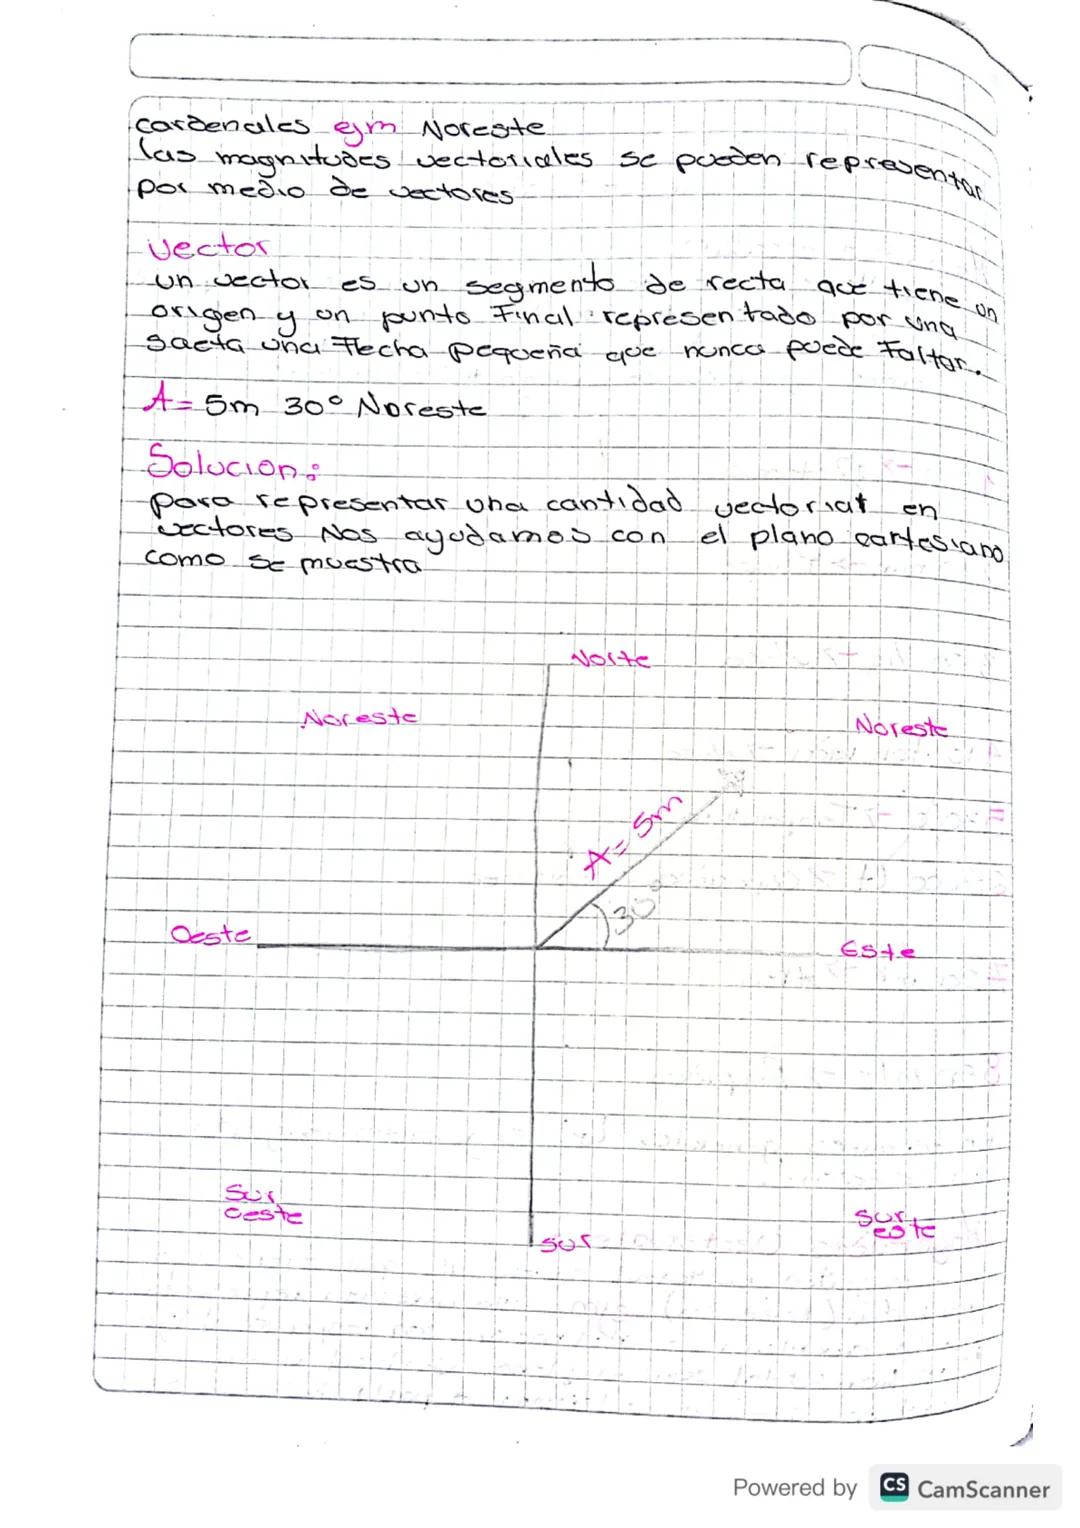 cardenales ejm Noreste
las magnitudes vectoriales se pueden representar
por medio de vectores
Vector
un vector es un segmento de recta que tiene un
origen y un punto Final representado por una
saeta una Flecha pequeña que nunca puede Faltar.
A= 5m 30° Noreste
Solucion:
para representar una cantidad vectorial en
vectores Nos ayudamos con el plano cartesiano
como se muestra
Norte
Noreste
Noreste
A= 5m
30°
Oeste
Este
Sur
oeste
Sur
este
Sur
Powered by CS CamScanner